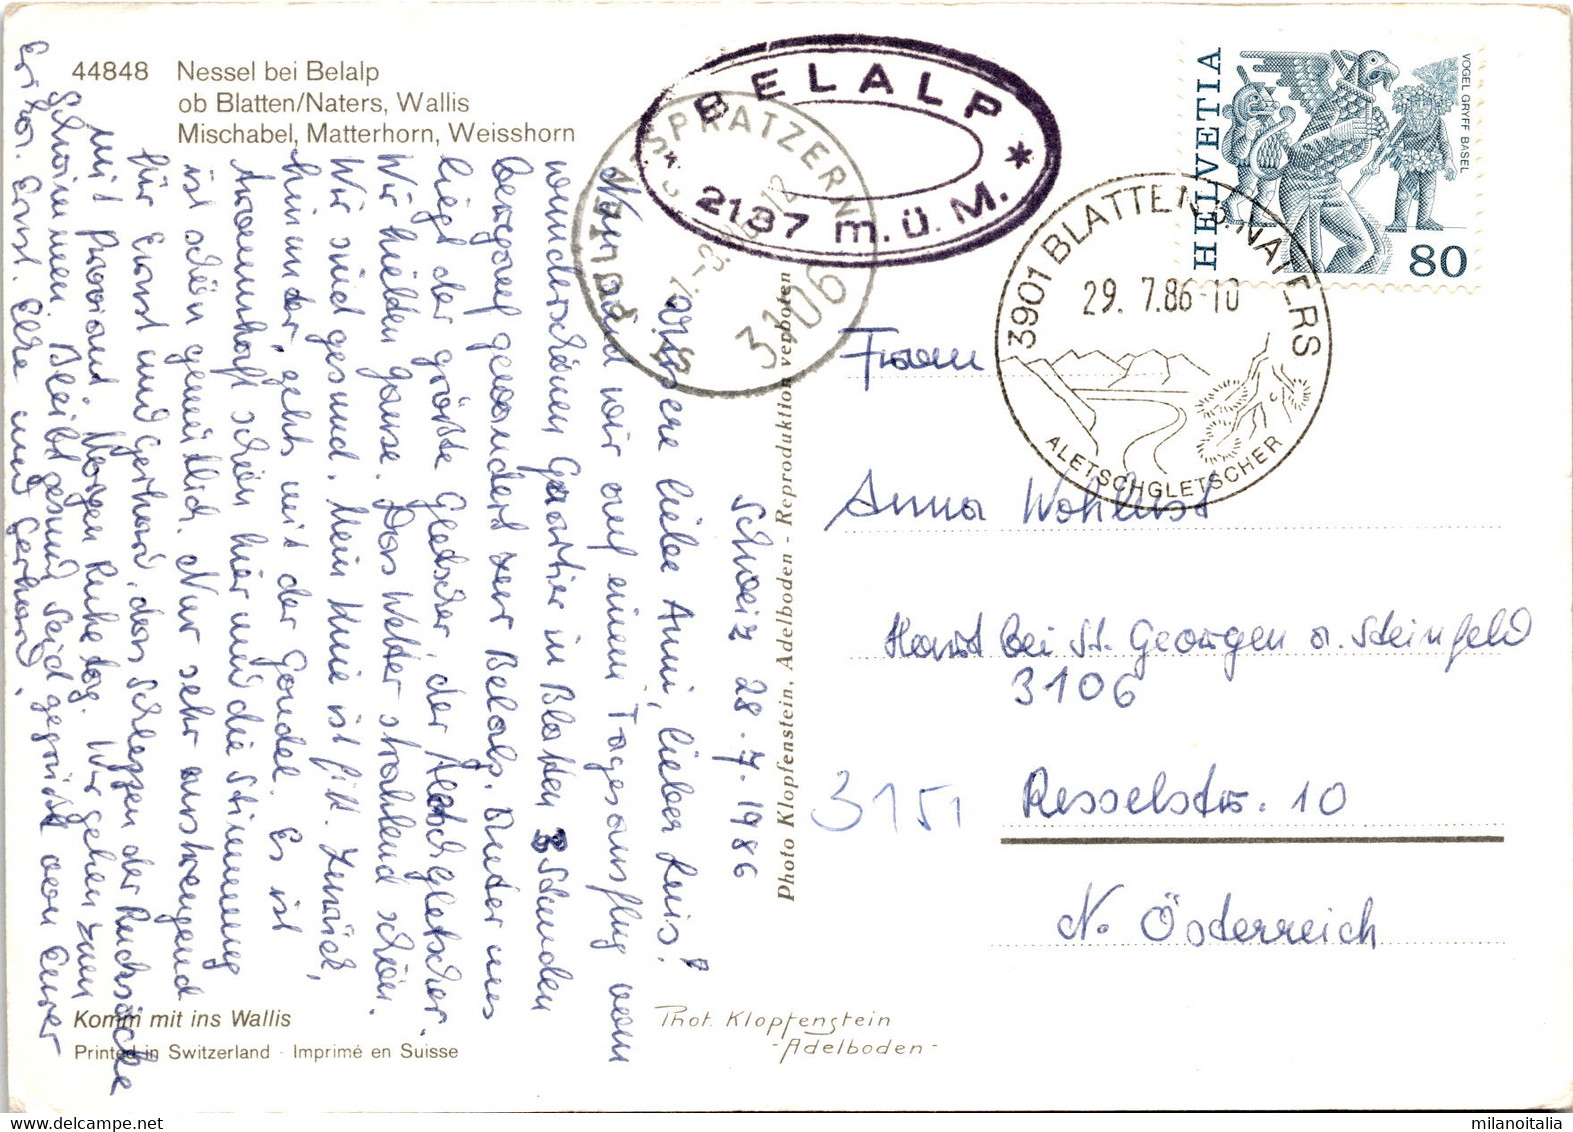 44848 Nessel bei Belalp
ob Blatten/Naters, Wallis
Mischabel, Matterhorn, Weisshorn
BELALP
* 2137 m.ü.M. *
ST. PÖLTEN-SPRATZERN
3106
HELVETIA
VOGEL GRYFF BASEL
80
3901 BLATTEN B. NATERS
29. 7.86-10
ALETSCHGLETSCHER
Schweiz 28.7.1986
Unsere liebe Anni, lieber Luis!
Nun sind wir auf einem Tagesausflug vom
wunderschönen Quartier in Blatten 3 Stunden
bergauf gewandert zur Belalp. Unter uns
liegt der größte Gletscher, der Aletschgletscher.
Wir hielten Jause. Das Wetter strahlend schön.
Wir sind gesund. Mein Knie ist fit. Zurück,
hinunter, gehts mit der Gondel. Es ist
traumhaft schön hier und die Stimmung
ist schön gemütlich. Nur sehr anstrengend
für Ernst und Gerhard, das Schleppen der Rucksäcke
mit Proviant. Morgen Ruhetag. Wir gehen zum
Schwimmen. Bleibt gesund. Seid gegrüßt von Eurer
Erika. Ernst. Elke und Gerhard.
Photo Klopfenstein, Adelboden - Reproduktion verboten
Fram
Anna Wohlmut
Hart bei St. Georgen a. Steinfeld
3106
3151
Resselstr. 10
N. Österreich
Komm mit ins Wallis
Printed in Switzerland · Imprimé en Suisse
Phot. Klopfenstein
- Adelboden -
milanoitalia